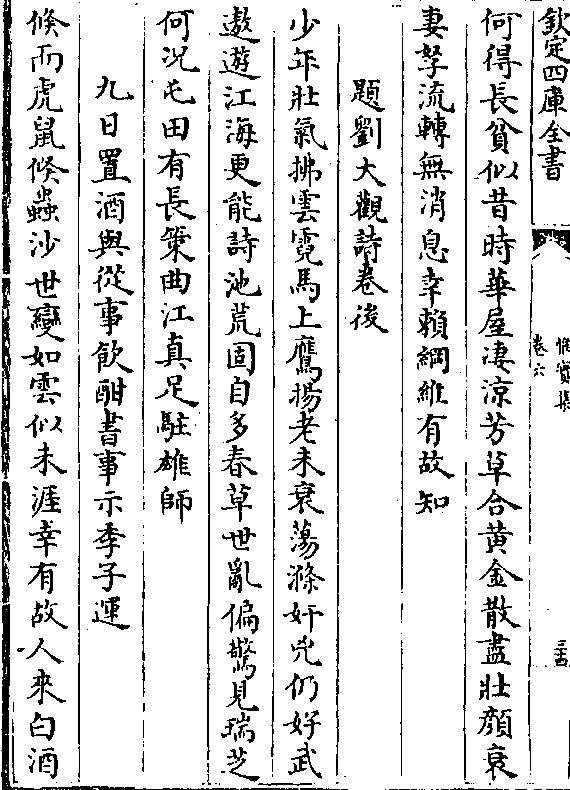 欽定四庫全書
惟實集
卷六
何得長貧似昔時華屋淒涼芳草合黄金散盡壯顔衰
妻孥流轉無消息幸賴綱維有故知
題劉大觀詩卷後
少年壯氣拂雲霓馬上鷹揚老未衰蕩滌奸兇仍好武
遨遊江海更能詩池荒固自多春草世亂偏驚見瑞芝
何况屯田有長策曲江真足駐雄師
九日置酒與從事飲酣書事示季子運
倐而虎鼠倐蟲沙世變如雲似未涯幸有故人來白酒